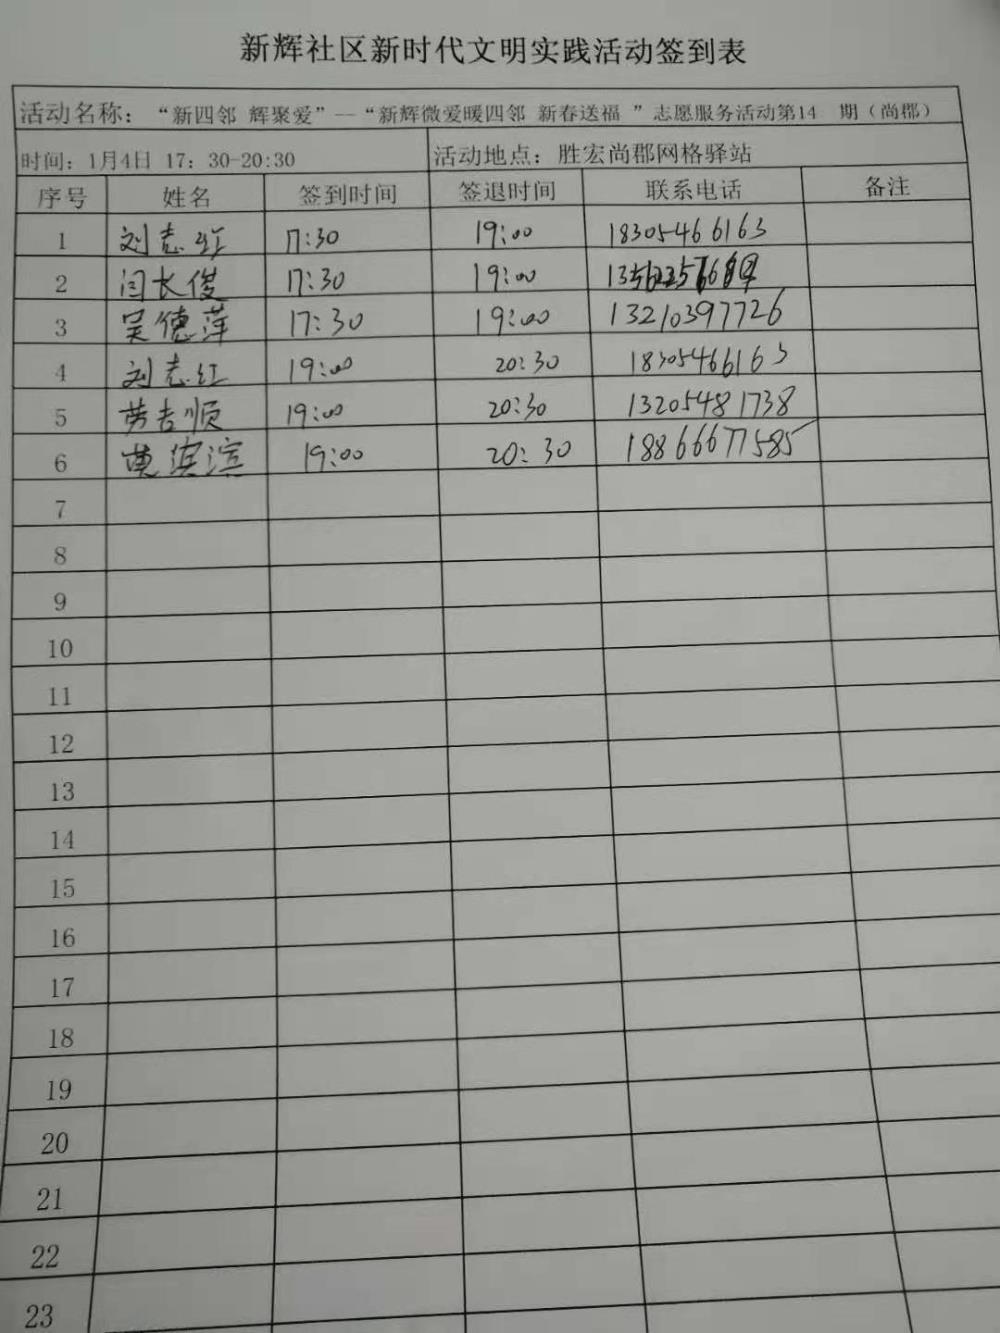 新辉社区新时代文明实践活动签到表
活动名称：“新四邻 辉聚爱”--“新辉微爱暖四邻 新春送福 ”志愿服务活动第14 期（尚郡）
时间：1月4日 17：30-20:30 活动地点：胜宏尚郡网格驿站
序号 姓名 签到时间 签退时间 联系电话 备注
1 刘志红 17:30 19:00 18305466163
2 闫长俊 17:30 19:00
3 吴德萍 17:30 19:00 13210397726
4 刘志红 19:00 20:30 18305466163
5 劳吉顺 19:00 20:30 13205481738
6 滨滨 19:00 20:30 18866677585
7
8
9
10
11
12
13
14
15
16
17
18
19
20
21
22
23